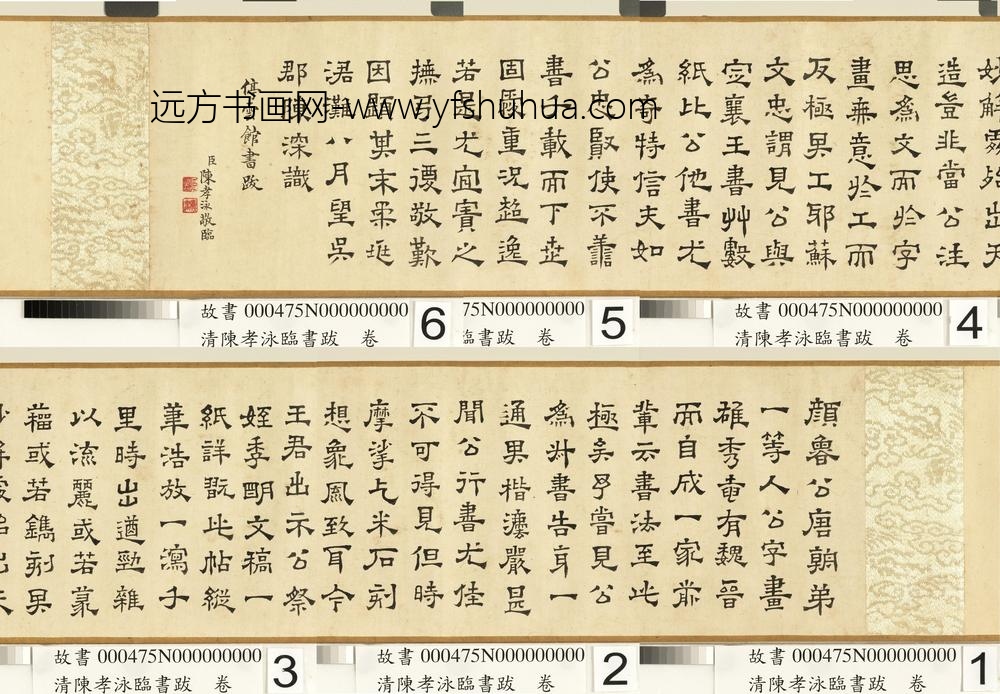 顏魯公唐朝弟
一等人公字畫
雄秀奄有魏晉
而自成一家前
輩云書法至此
極矣予嘗見公
書告身一
通果楷灋嚴甚
聞公行書尤佳
不可得見但時
摩挲乞米石刻
想象風致耳今
王君出示公祭
姪季明文稿一
紙詳翫此帖縱
筆浩放一瀉千
里時出遒勁雜
以流麗或若篆
籀或若鐫刻果
妙解露殆出天
造豈非當公注
思為文而於字
畫無意於工而
反極其工耶蘇
文忠謂見公與
定襄王書艸數
紙比公他書尤
為奇特信夫如
公忠賢使不善
書千載而下世
固愛重況超逸
若是尤宜寶之
撫弔三復敬歎
因題其末
涒灘八月望吳
郡陳深識
停雲館書跋
臣陳孝泳敬臨
远方书画网-www.yfshuhua.com
故書 000475N000000000 6
清陳孝泳臨書跋 卷
75N000000000 5
臨書跋 卷
故書 000475N000000000 4
清陳孝泳臨書跋 卷
故書 000475N000000000 3
清陳孝泳臨書跋 卷
故書 000475N000000000 2
清陳孝泳臨書跋 卷
故書 000475N000000000 1
清陳孝泳臨書跋 卷